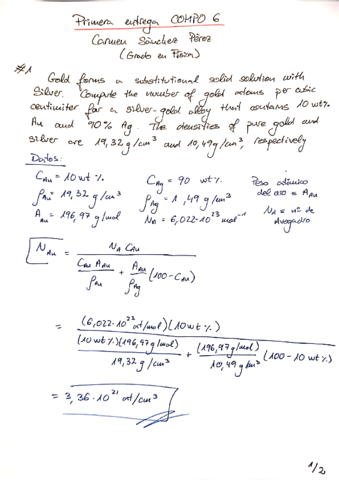 Primera entrega COMPO 6
Carmen Sánchez Pérez
(Grado en Física)
#1
Gold forms a substitutional solid solution with
Silver. Compute the number of gold atoms per cubic
centimiter for a silver-gold alloy that contains 10 wt%
Au and 90% Ag. The densities of pure gold and
silver are 19,32 g/cm³ and 10,49 g/cm³, respectively
Datos:
C_Au = 10 wt % C_Ag = 90 wt% Peso atómico
ρ_Au = 19,32 g/cm³ ρ_Ag = 1 ,49 g/cm³ del oro = A_Au
A_Au = 196,97 g/mol N_A = 6,022·10²³ mol⁻¹ N_A = nº de
Avogadro
N_Au = N_A C_Au / (C_Au A_Au / ρ_Au + A_Au / ρ_Ag (100 - C_Au))
= (6,022·10²³ at/mol)(10 wt %) / ((10 wt %)(196,97 g/mol) / 19,32 g/cm³ + (196,97 g/mol) / 10,49 g/cm³ (100 - 10 wt %))
= 3,36·10²¹ at/cm³
1/2